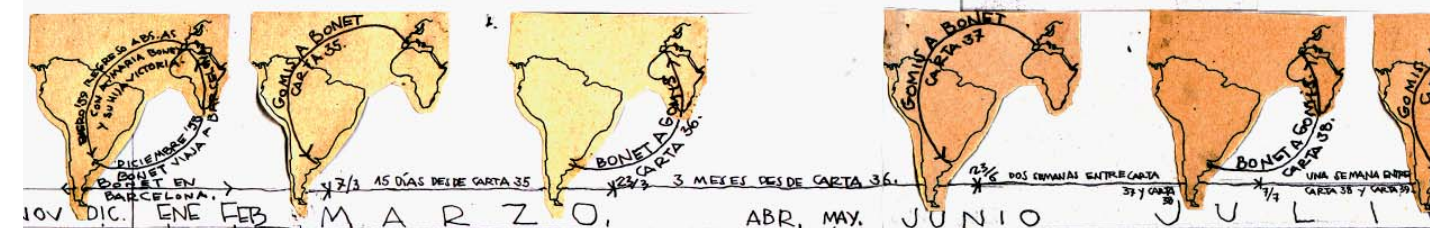 ENERO '39 REGRESO A BS. AS
CON ANAMARIA BONET
Y SU HIJA VICTORIA.
DICIEMBRE '38
BONET VIAJA A BARCELONA
BONET EN
BARCELONA.
GOMIS A BONET
CARTA 35.
7/3 15 DÍAS DESDE CARTA 35
BONET A GOMIS
CARTA 36.
23/3 3 MESES DESDE CARTA 36.
GOMIS A BONET
CARTA 37
23/6 DOS SEMANAS ENTRE CARTA
37 Y CARTA
38
BONET A GOMIS
CARTA 38.
7/7 UNA SEMANA ENTRE
CARTA 38 Y CARTA 39.
GOMIS
NOV DIC. ENE FEB MARZO. ABR, MAY. JUNIO JULI